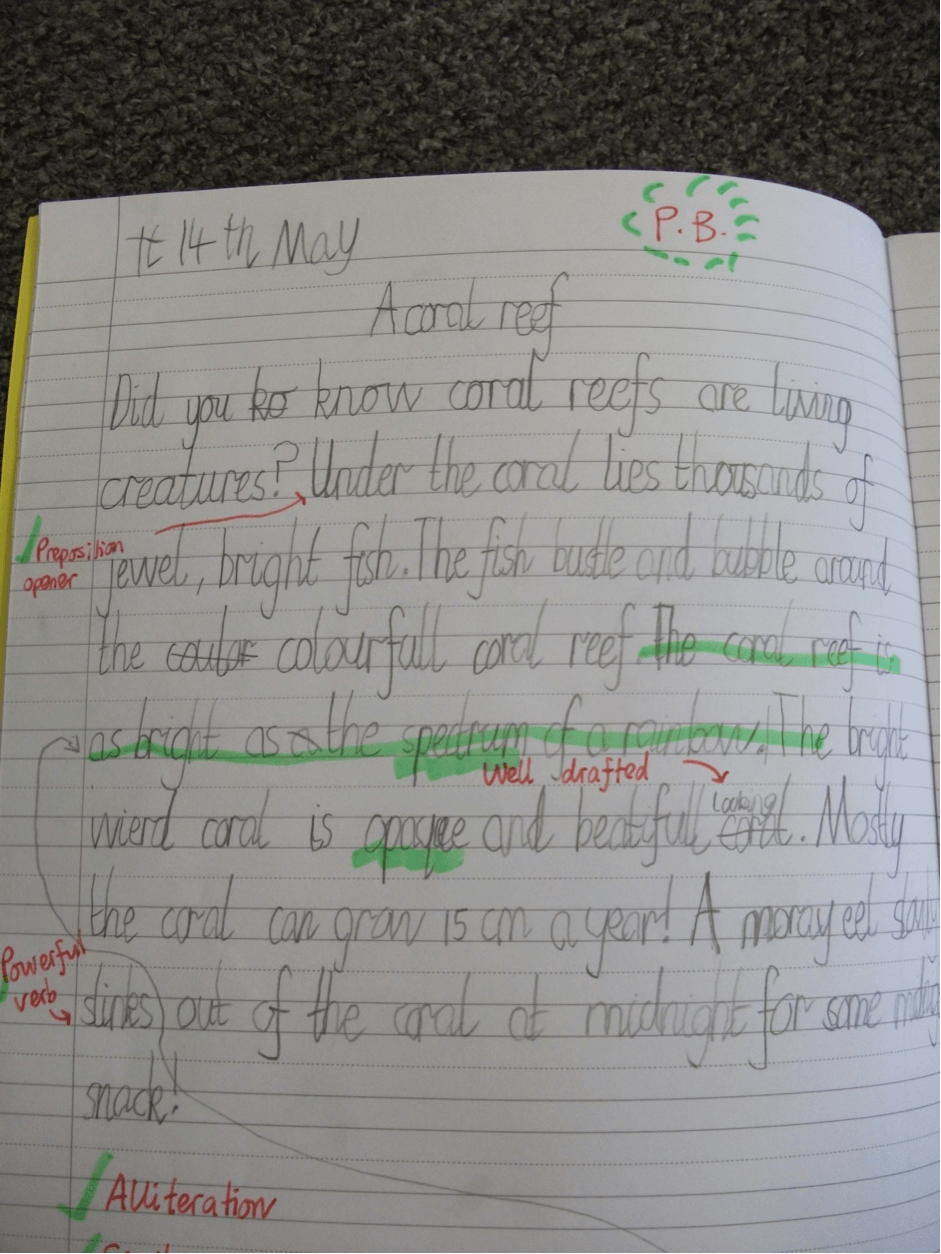 tt 14th May
P.B.
A coral reef
Did you ko know coral reefs are living
creatures? Under the coral lies thousands of
Preposition
opener
jewel, bright fish. The fish bustle and bubble around
the coulor colourfull coral reef. The coral reef is
as bright as the spectrum of a rainbow! The bright
Well drafted
wierd coral is opaque and beatifull looking coral. Mostly
the coral can grow 15 cm a year! A moray eel
Powerful
verb
slinks out of the coral at midnight for some
snack!
Alliteration